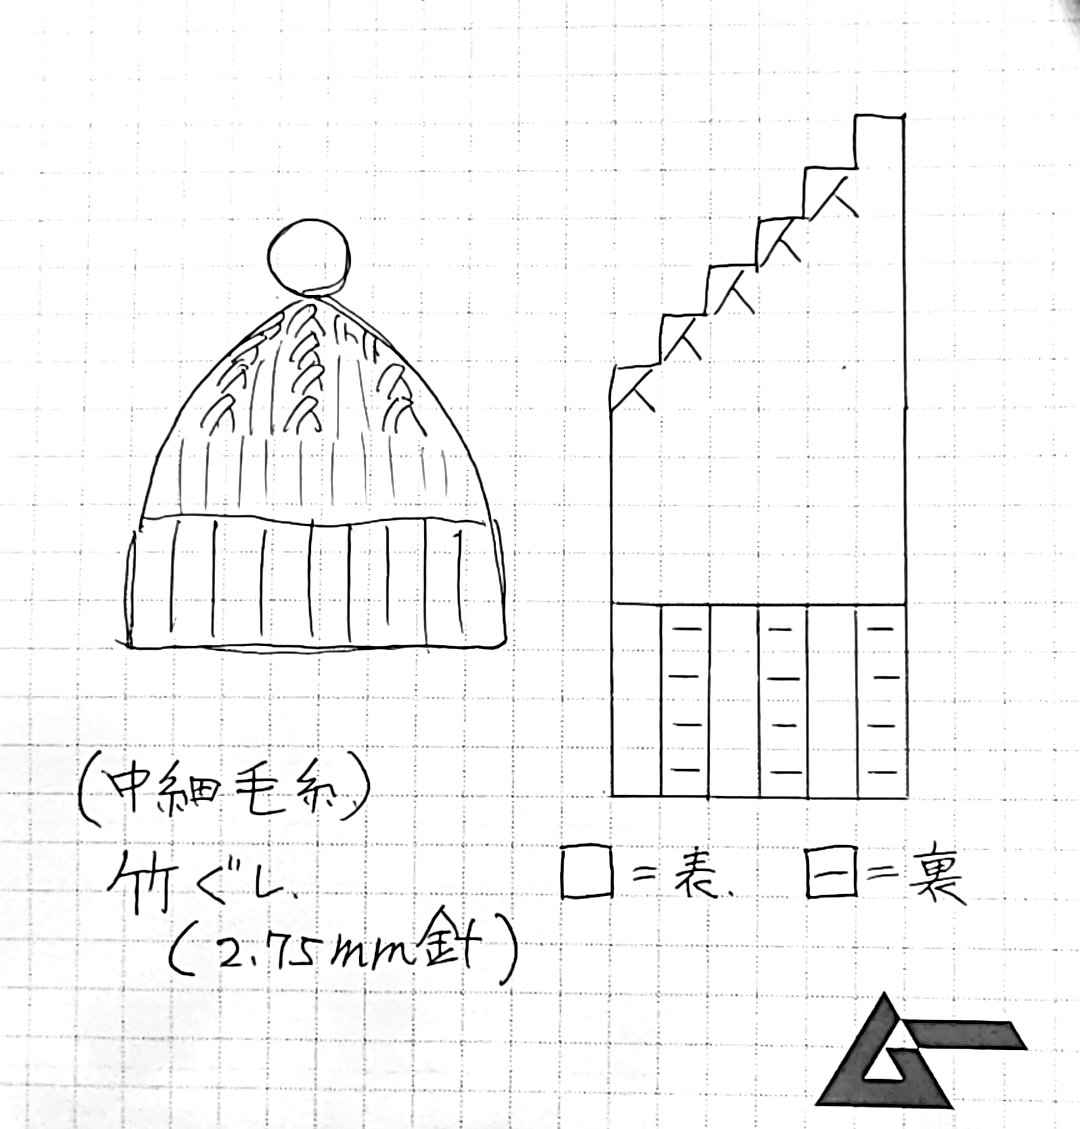 (中細毛糸)
竹ぐし.
(2.75mm針)
□=表. ⊟=裏